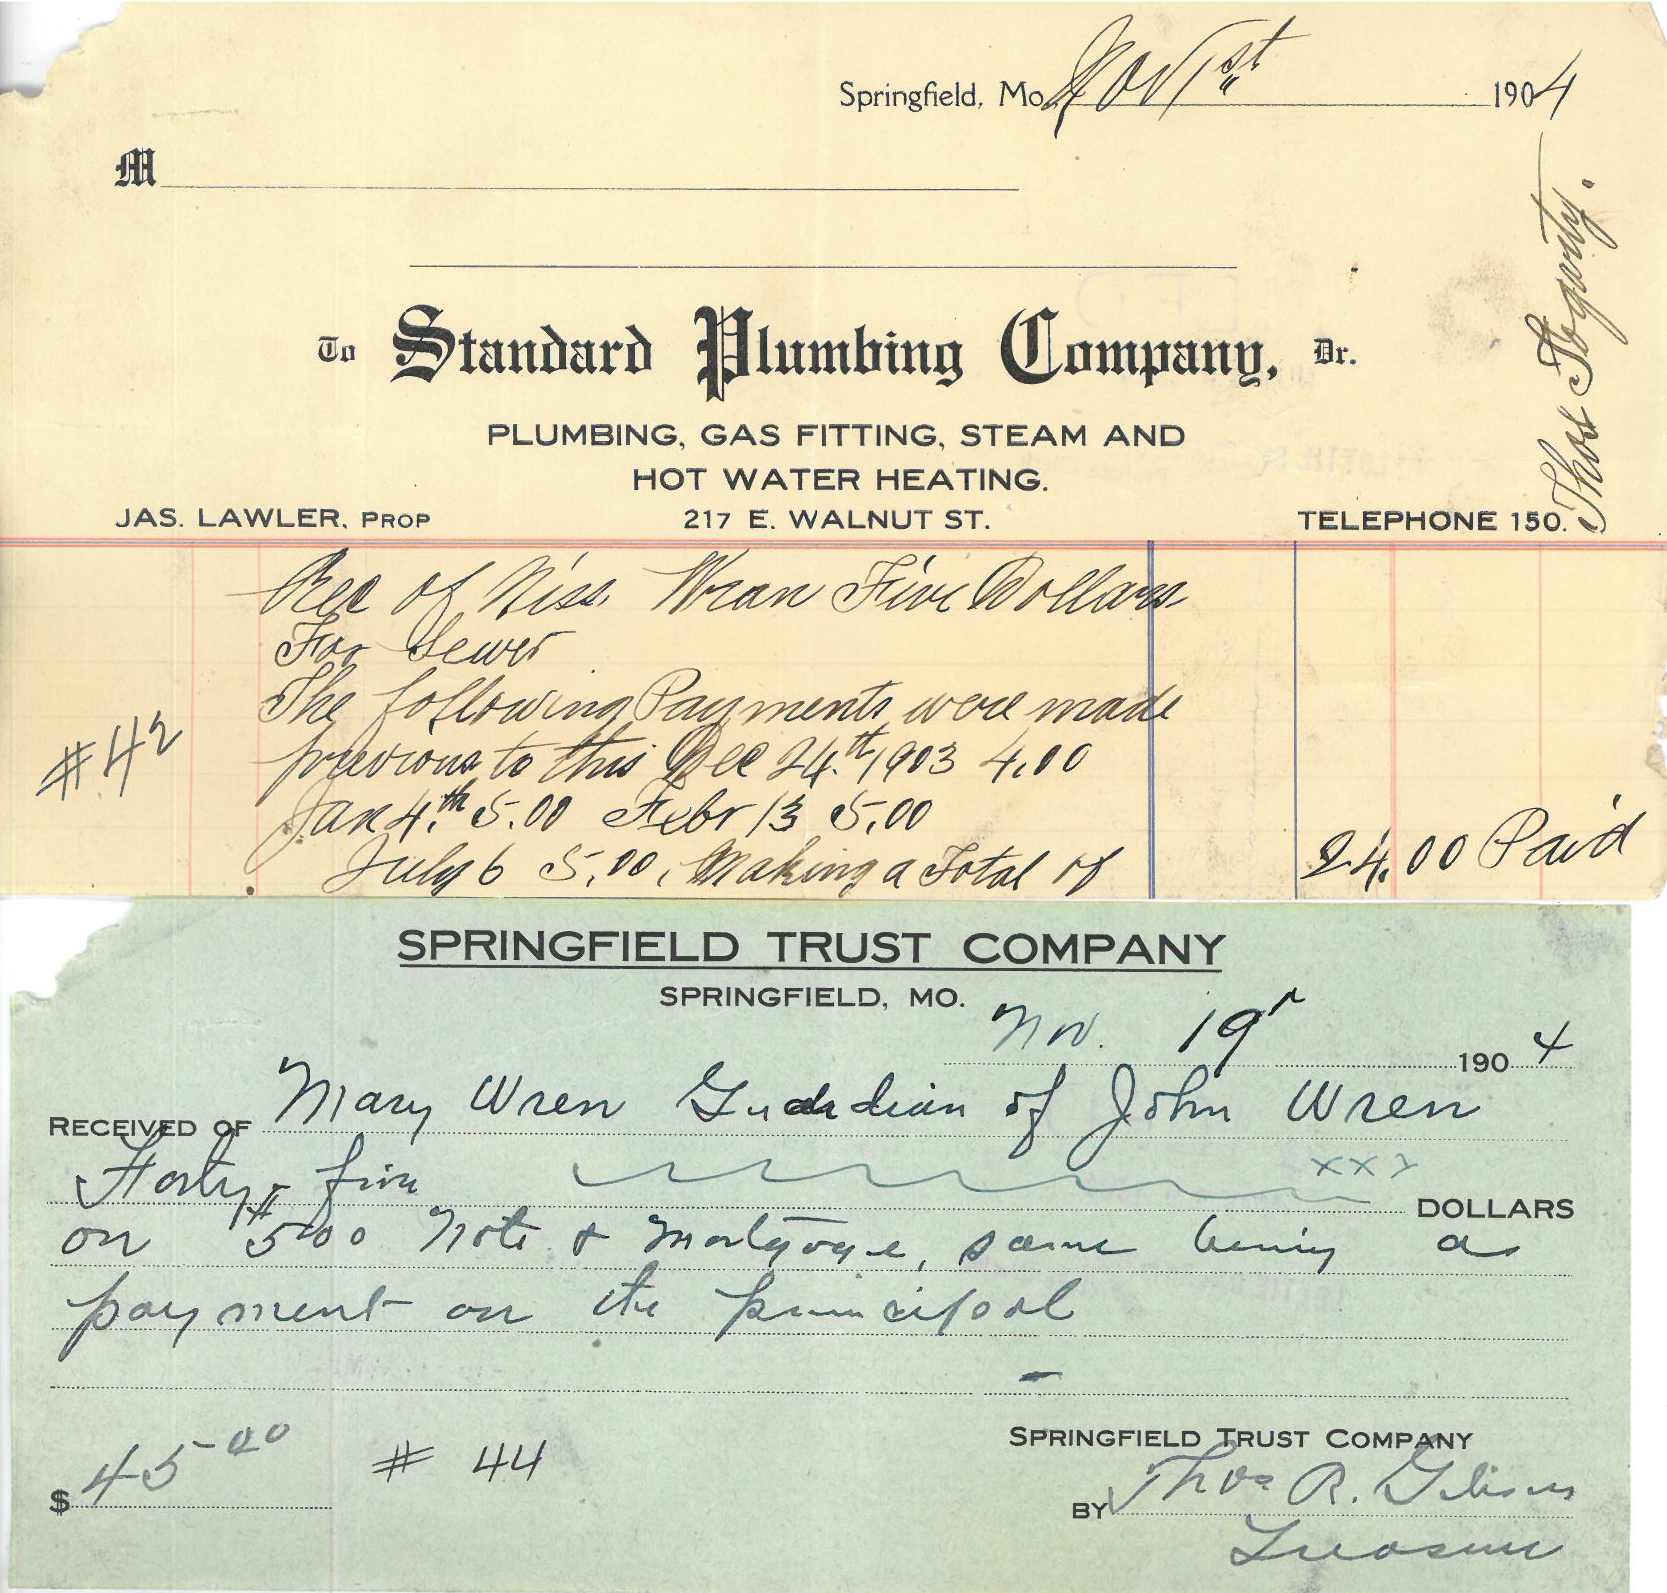 Springfield, Mo Nov 1st 1904
M
To Standard Plumbing Company, Dr.
PLUMBING, GAS FITTING, STEAM AND
HOT WATER HEATING.
JAS. LAWLER, PROP 217 E. WALNUT ST. TELEPHONE 150.
Thos Fogarty.
Rec of Miss Wran Five Dollars
For Sewer
The following Payments were made
previous to this Dec 24th 1903 4.00
#42
Jan 4th 5.00 Febr 13 5.00
July 6 5.00, Making a Total of 24.00 Paid
SPRINGFIELD TRUST COMPANY
SPRINGFIELD, MO.
Nov. 19 1904
RECEIVED OF Mary Wren Guardian of John Wren
Forty-five xxx DOLLARS
on $500 Note & Mortgage, same being as
payment on the principal
SPRINGFIELD TRUST COMPANY
$ 45.00 # 44
BY Thos R. Gibson
Treasurer